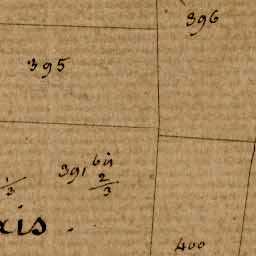 396
395
391 bis
2/3
/3
is
400